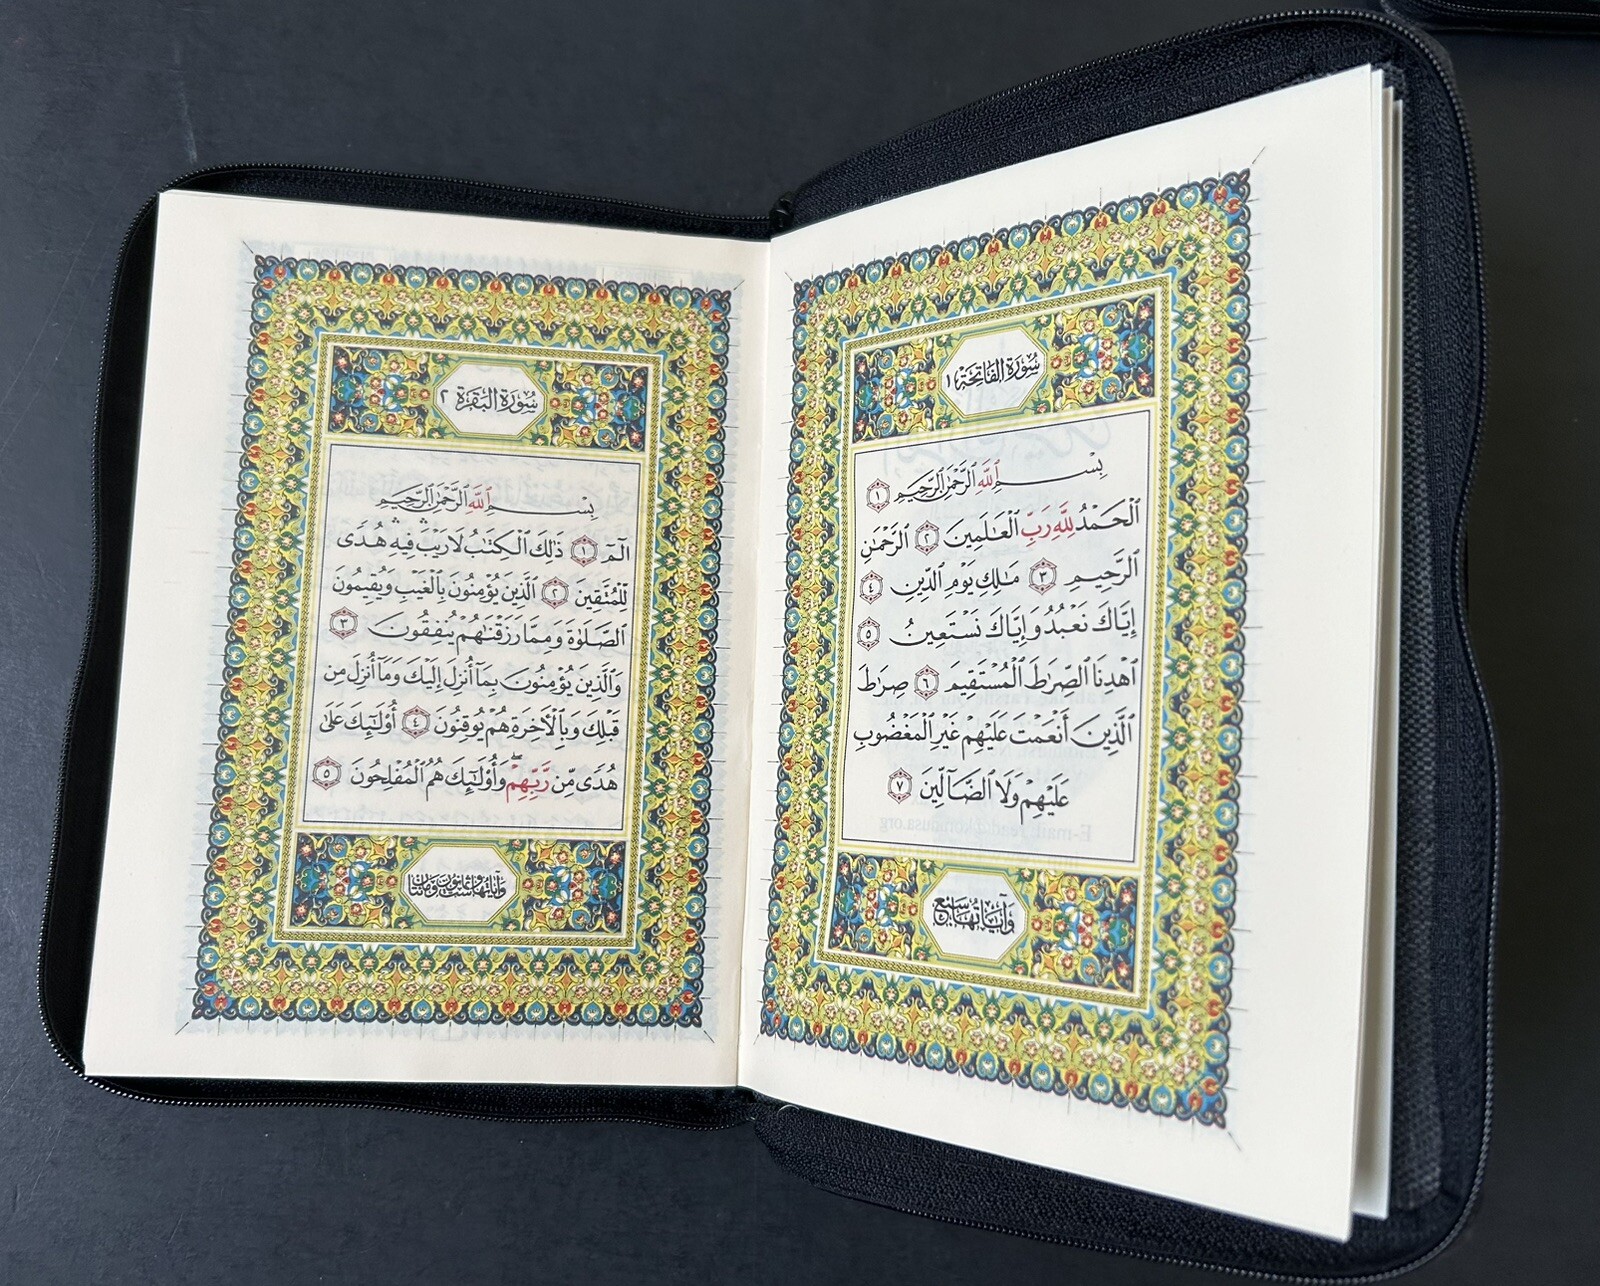 سُورَةُ الفَاتِحَةِ ١
بِسْمِ ٱللَّهِ ٱلرَّحْمَٰنِ ٱلرَّحِيمِ ١
ٱلْحَمْدُ لِلَّهِ رَبِّ ٱلْعَٰلَمِينَ ٢ ٱلرَّحْمَٰنِ
ٱلرَّحِيمِ ٣ مَٰلِكِ يَوْمِ ٱلدِّينِ ٤
إِيَّاكَ نَعْبُدُ وَإِيَّاكَ نَسْتَعِينُ ٥
ٱهْدِنَا ٱلصِّرَٰطَ ٱلْمُسْتَقِيمَ ٦ صِرَٰطَ
ٱلَّذِينَ أَنْعَمْتَ عَلَيْهِمْ غَيْرِ ٱلْمَغْضُوبِ
عَلَيْهِمْ وَلَا ٱلضَّآلِّينَ ٧
وَآيَاتُهَا سَبْعٌ
سُورَةُ البَقَرَةِ ٢
بِسْمِ ٱللَّهِ ٱلرَّحْمَٰنِ ٱلرَّحِيمِ
الٓمٓ ١ ذَٰلِكَ ٱلْكِتَٰبُ لَا رَيْبَ ۛ فِيهِ ۛ هُدًى
لِّلْمُتَّقِينَ ٢ ٱلَّذِينَ يُؤْمِنُونَ بِٱلْغَيْبِ وَيُقِيمُونَ
ٱلصَّلَوٰةَ وَمِمَّا رَزَقْنَٰهُمْ يُنفِقُونَ ٣
وَٱلَّذِينَ يُؤْمِنُونَ بِمَآ أُنزِلَ إِلَيْكَ وَمَآ أُنزِلَ مِن
قَبْلِكَ وَبِٱلْءَاخِرَةِ هُمْ يُوقِنُونَ ٤ أُو۟لَٰٓئِكَ عَلَىٰ
هُدًى مِّن رَّبِّهِمْ ۖ وَأُو۟لَٰٓئِكَ هُمُ ٱلْمُفْلِحُونَ ٥
وَآيَاتُهَا سِتٌّ وَثَمَانُونَ وَمِائَتَانِ